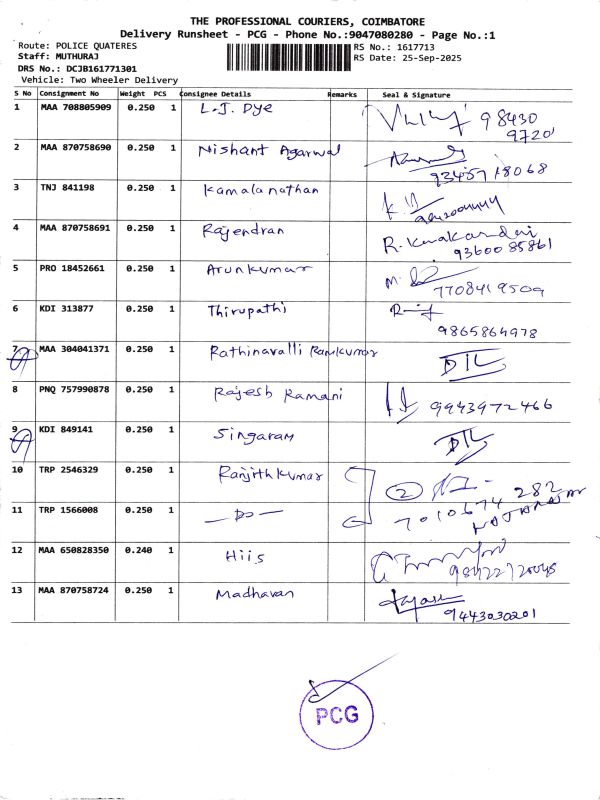 THE PROFESSIONAL COURIERS, COIMBATORE
Delivery Runsheet - PCG - Phone No.:9047080280 - Page No.:1
Route: POLICE QUATERES RS No.: 1617713
Staff: MUTHURAJ RS Date: 25-Sep-2025
DRS No.: DCJB161771301
Vehicle: Two Wheeler Delivery
S No Consignment No Weight PCS Consignee Details Remarks Seal & Signature
1 MAA 708805909 0.250 1 L.J. Dye 98430
9720
2 MAA 870758690 0.250 1 Nishant Agarwal
9345718068
3 TNJ 841198 0.250 1 Kamalanathan
4 MAA 870758691 0.250 1 Rajendran
9360085861
5 PRO 18452661 0.250 1 Arunkumar
7708419509
6 KDI 313877 0.250 1 Thirupathi
9865864978
7 MAA 304041371 0.250 1 Rathinavalli Ramkumar DIL
8 PNQ 757990878 0.250 1 Rajesh Ramani 9943972466
9 KDI 849141 0.250 1 Singaram DIL
10 TRP 2546329 0.250 1 Ranjithkumar 2
7010674 282
NATARAJAN
11 TRP 1566008 0.250 1 — Do —
12 MAA 650828350 0.240 1 Hiis
13 MAA 870758724 0.250 1 Madhavan
9443030201
PCG